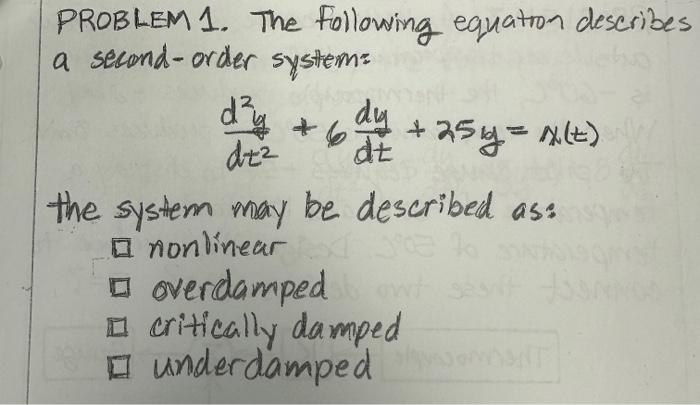 PROBLEM 1. The following equation describes
a second-order system:
d²y/dt² + 6 dy/dt + 25y = x(t)
the system may be described as:
□ nonlinear
□ overdamped
□ critically damped
□ underdamped